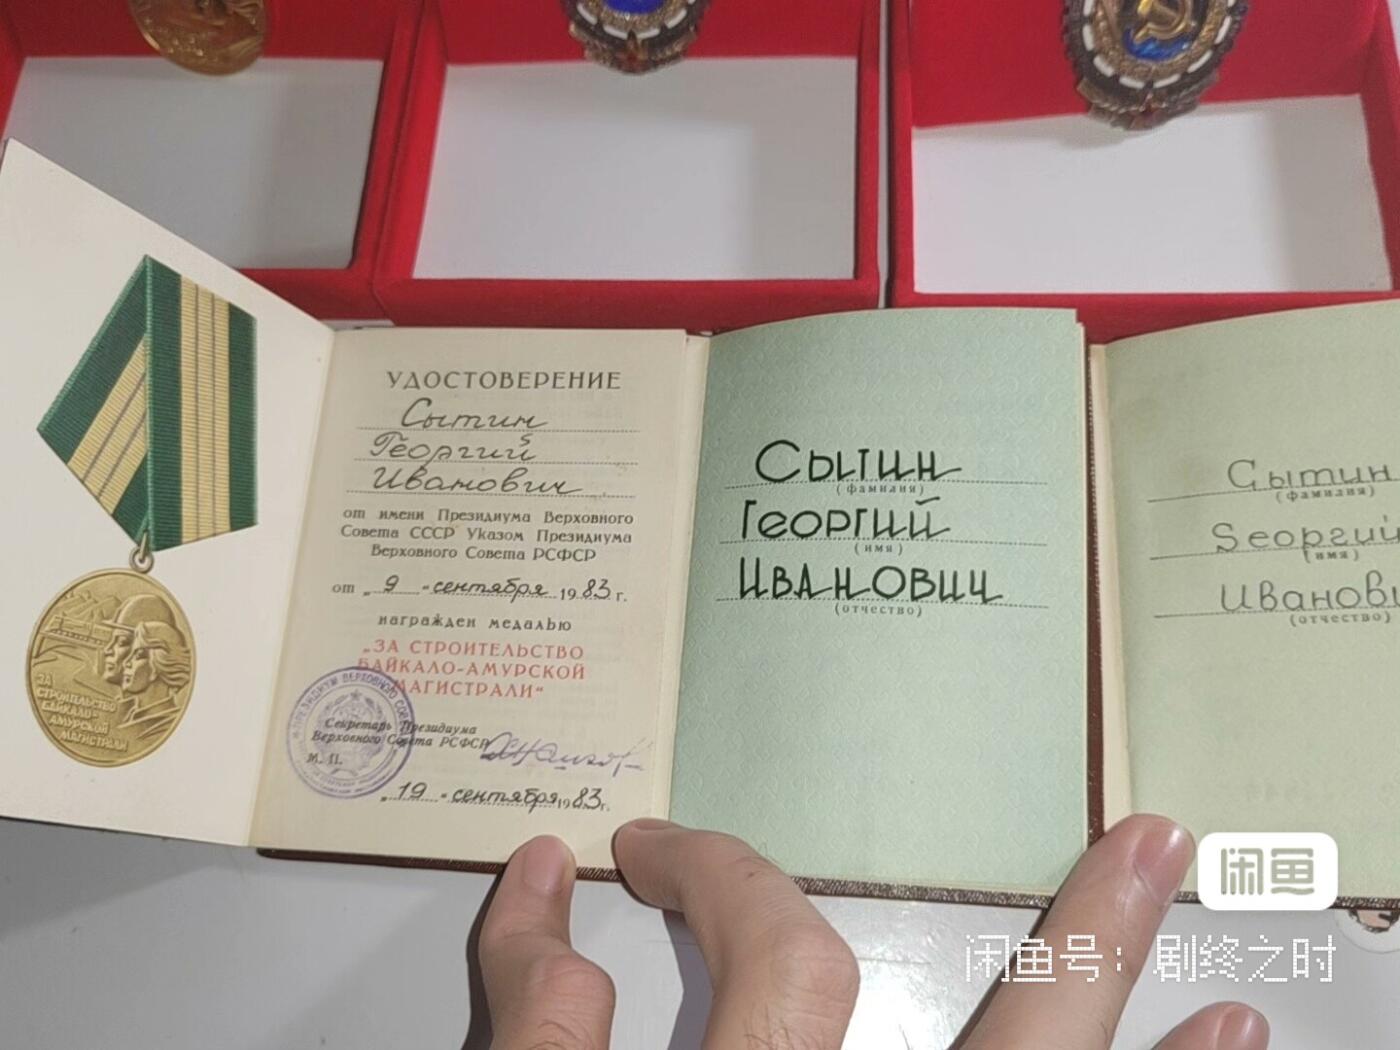 УДОСТОВЕРЕНИЕ
Сытин
Георгий
Иванович
от имени Президиума Верховного
Совета СССР Указом Президиума
Верховного Совета РСФСР
от „ 9 “ сентября 1983 г.
награжден медалью
„ЗА СТРОИТЕЛЬСТВО
БАЙКАЛО-АМУРСКОЙ
МАГИСТРАЛИ“
Секретарь Президиума
Верховного Совета РСФСР
М. П.
„ 19 “ сентября 1983 г.
ЗА
СТРОИТЕЛЬСТВО
БАЙКАЛО-
АМУРСКОЙ
МАГИСТРАЛИ
Сытин
(фамилия)
Георгий
(имя)
Иванович
(отчество)
Сытин
(фамилия)
Георгий
(имя)
(отчество)
闲鱼
闲鱼号：剧终之时